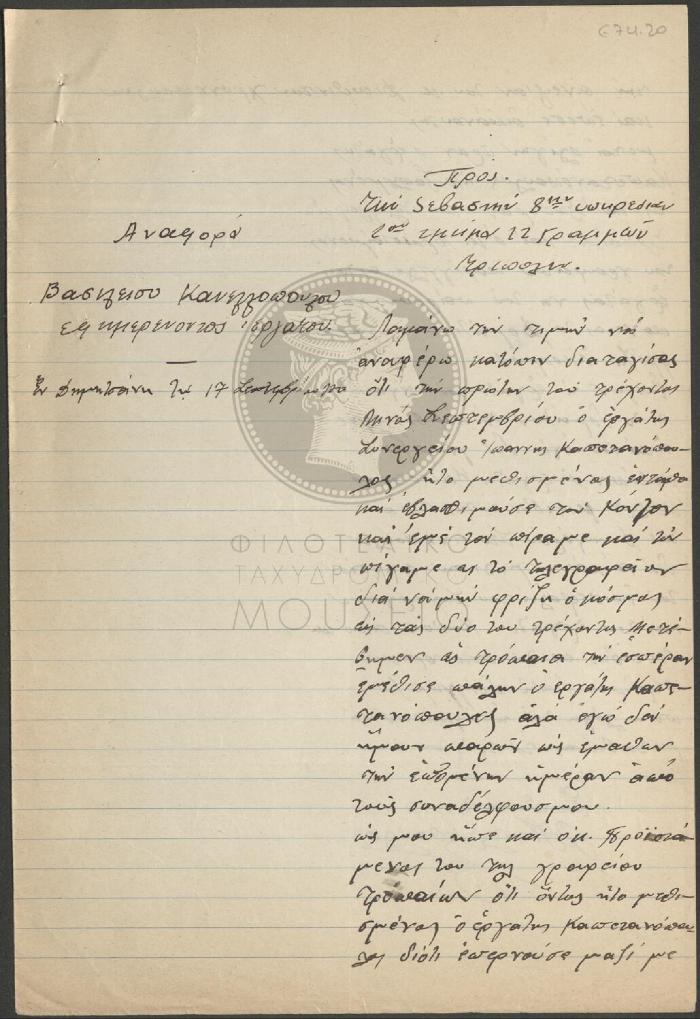 674.20
Προς.
Την Σεβαστήν 8ην υπηρεσίαν
2ον τμήμα ΣΣ Γραμμών
Τρίπολιν.
Αναφορά
Βασιλείου Κανελλοπούλου
εφημερεύοντος εργάτου
Εν Δημητσάνη τη 17 Σεπτεμβρίου
Λαμβάνω την τιμήν να
αναφέρω κατόπιν διαταγίσας
ότι την πρώτην του τρέχοντος
Μηνός Σεπτεμβρίου ο εργάτης
Συνεργείου Ιωάννης Καπετανόπου-
λος ήτο μεθισμένος εντάθα
και εβλασθιμούσε τον Κόντον
και εμέ τον πίραμε και τον
πίγαμε ις το τηλεγραφείον
διά να μην φρίξη ο κόσμος
εις τας δύο του τρέχοντος μετέ-
βημεν εις τρόπαια την εσπέραν
εμέθισε πάλην ο εργάτης Καπε-
τανόπουλος αλά εγώ δεν
ήμουν παρών ως έμαθαν
την επομένην ημέραν από
τους συναδέλφους μου.
ως μου ήπε και ο κ. Προϊστά-
μενος του τηλγραφείου
Τροπαίων ότι όντος ήτο μεθι-
σμένος ο εργάτης Καπετανόπου-
λος διότι επερνούσε μαζί με
ΦΙΛΟΤΕΛΙΚΟ
ΤΑΧΥΔΡΟΜΙΚΟ
ΜΟΥΣΕΙΟ